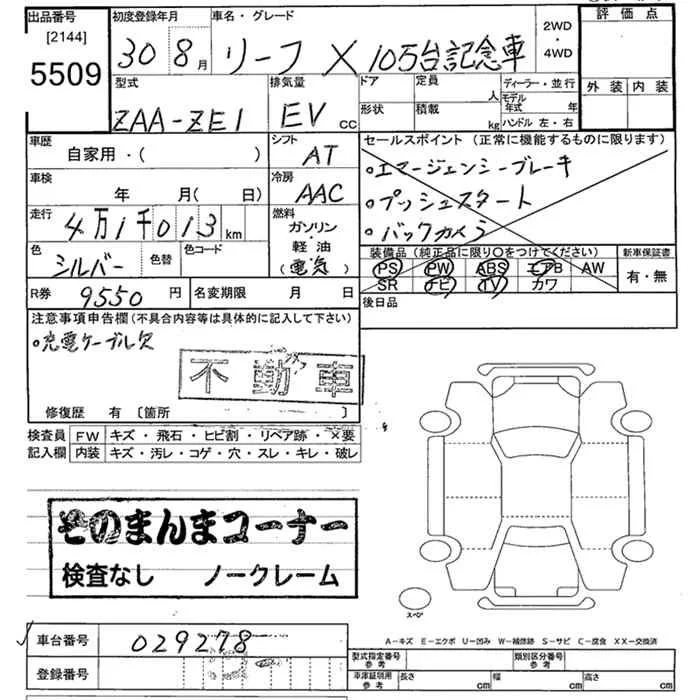 出品番号
[2144]
5509
初度登録年月
30 8月
車名・グレード
リーフ X 105台記念車
2WD
・
4WD
評価点
外装 内装
型式
ZAA-ZE1
排気量
EV CC
ドア
定員
人
形状
積載
kg
ディーラー・並行
モデル年式 年
ハンドル 左・右
車歴
自家用・( )
シフト
AT
車検
年 月( 日)
冷房
AAC
走行
4万1千013 km
燃料
ガソリン
・
軽油
(電気)
色
シルバー
色替
色コード
R券
9550円
名変期限 月 日
セールスポイント(正常に機能するものに限ります)
・エマージェンシーブレーキ
・プッシュスタート
・バックカメラ
装備品(純正品に限り〇をつけてください)
PS PW ABS エアB AW
SR ナビ TV カワ
新車保証書
有・無
後日品
注意事項申告欄(不具合内容等は具体的に記入して下さい)
・充電ケーブル欠
不動車
修復歴 有 [箇所 ]
検査員記入欄
FW キズ・飛石・ヒビ割・リペア跡・×要
内装 キズ・汚レ・コゲ・穴・スレ・キレ・破レ
そのまんまコーナー
検査なし ノークレーム
スペア
A-キズ E-エクボ U-凹み W-補修跡 S-サビ C-腐食 XX-交換済
車台番号 029278
登録番号
型式指定番号
参考
類別区分番号
参考
車庫証明用
参考
長さ cm
幅 cm
高さ cm